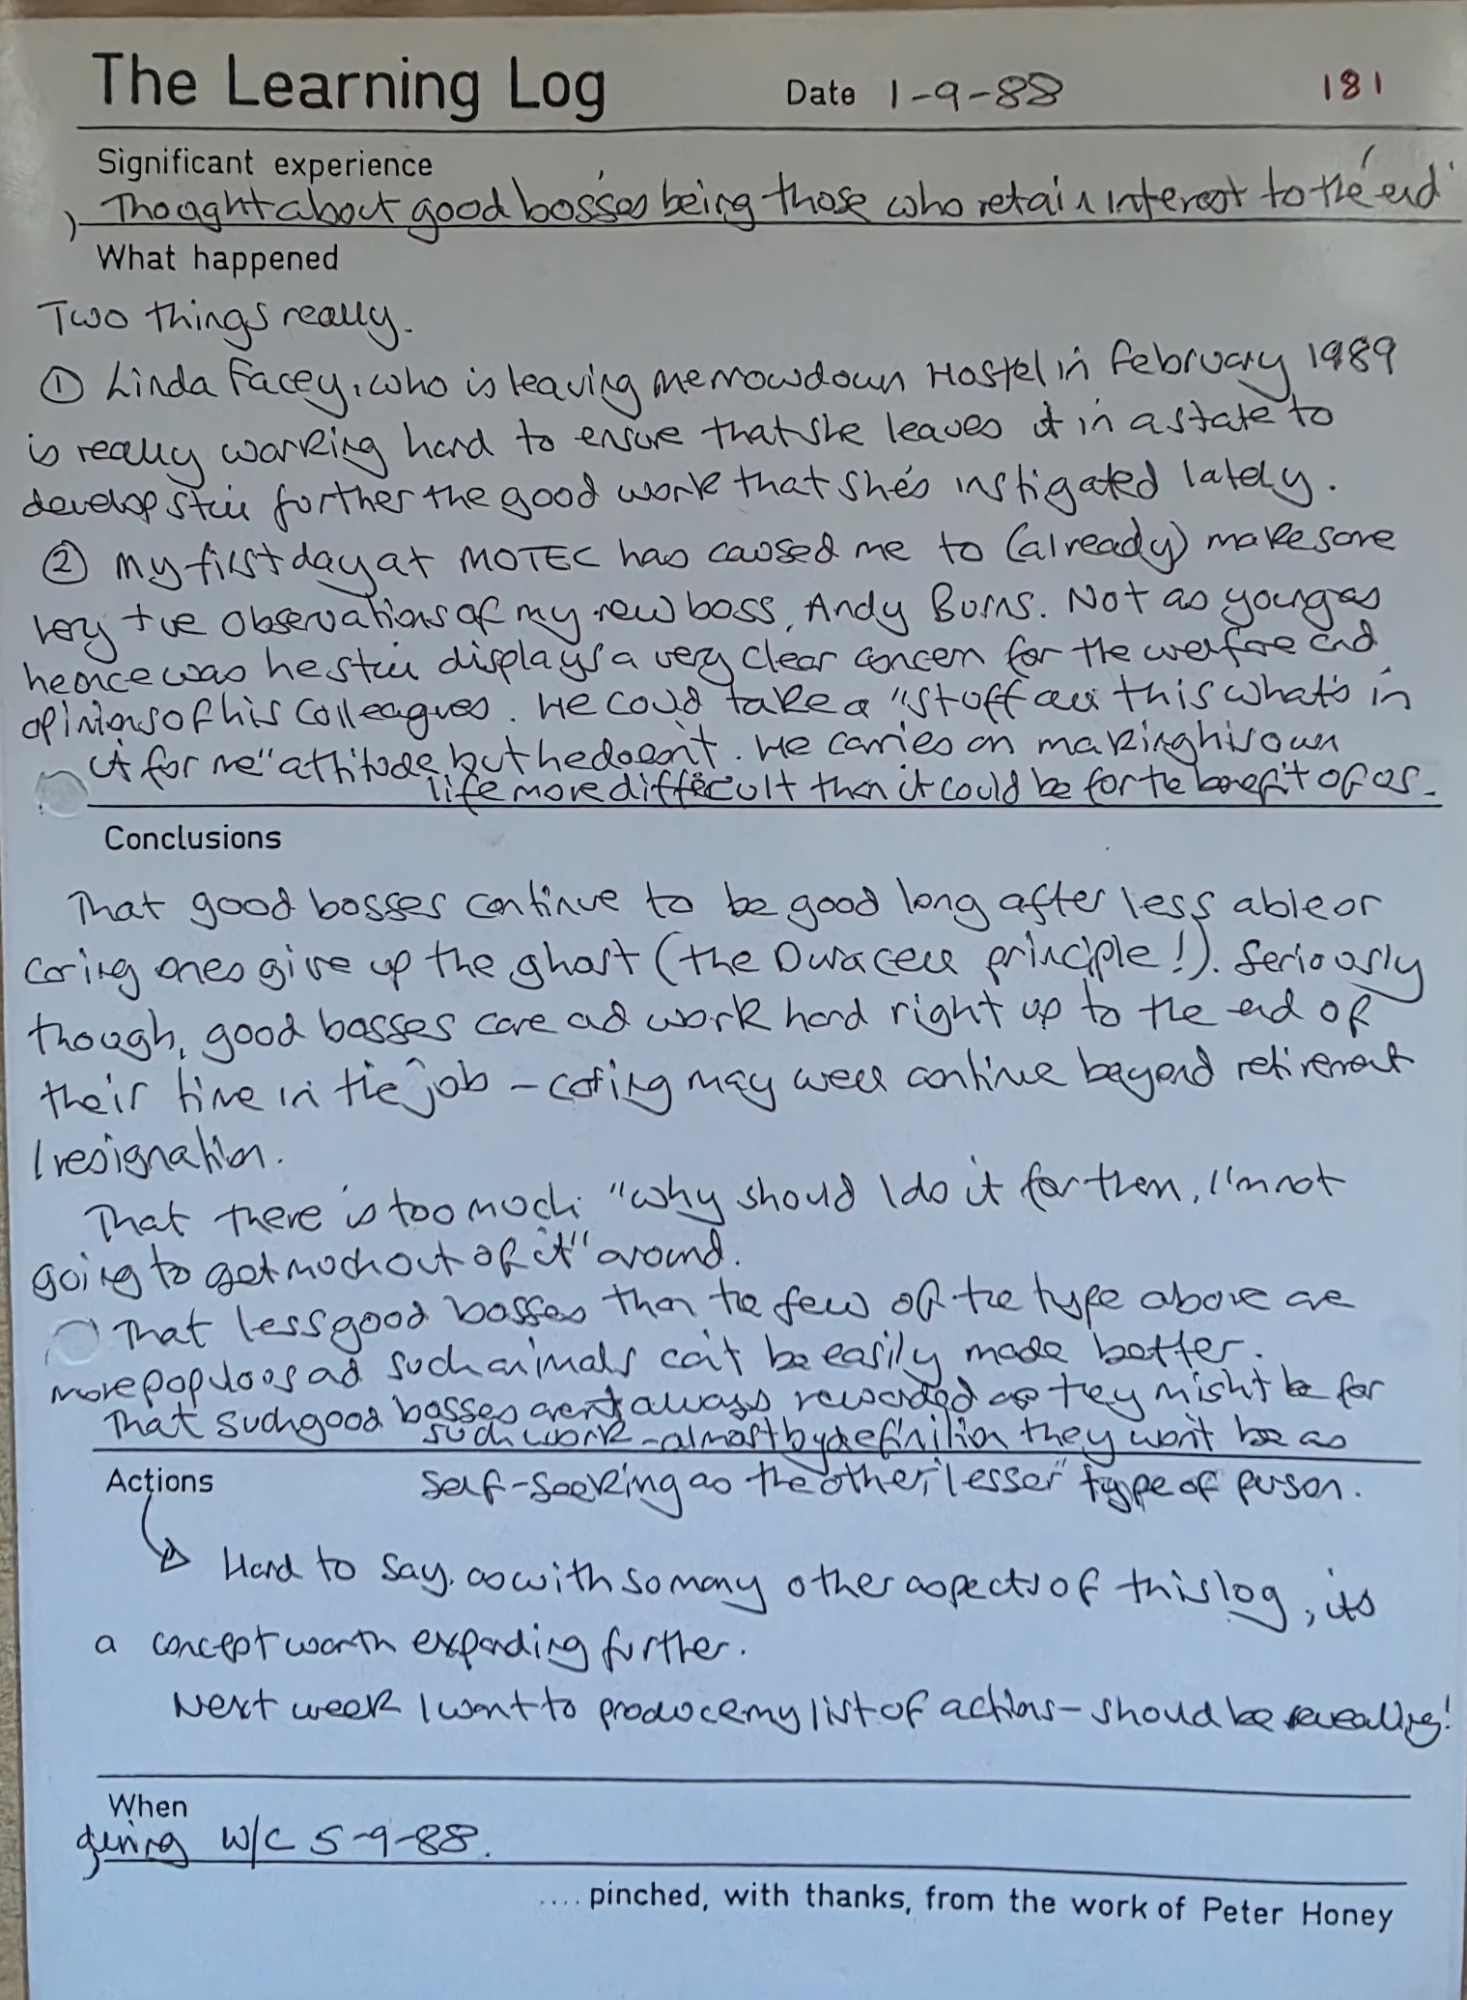 The Learning Log Date 1-9-88 181
Significant experience
Thought about good bosses being those who retain interest to 'the end'
What happened
Two things really.
① Linda Facey, who is leaving Merrowdown Hostel in February 1989
is really working hard to ensure that she leaves it in a state to
develop still further the good work that she's instigated lately.
② My first day at MOTEC has caused me to (already) make some
very +ve observations of my new boss, Andy Burns. Not as young as
he once was he still displays a very clear concern for the welfare and
opinions of his colleagues. He could take a "stuff all this what's in
it for me" attitude but he doesn't. He carries on making his own
life more difficult than it could be for the benefit of us.
Conclusions
That good bosses continue to be good long after less able or
caring ones give up the ghost (the Duracell principle!). Seriously
though, good bosses care and work hard right up to the end of
their time in the job - caring may well continue beyond retirement
/resignation.
That there is too much "why should I do it for them, I'm not
going to get much out of it" around.
That less good bosses than the few of the type above are
more populous and such animals can't be easily made better.
That such good bosses aren't always rewarded as they might be for
such work - almost by definition they won't be as
self-seeking as the other, "lesser" type of person.
Actions
Hard to say. as with so many other aspects of this log, its
a concept worth expanding further.
Next week I want to produce my list of actions - should be revealing!
When
during W/C 5-9-88.
.... pinched, with thanks, from the work of Peter Honey